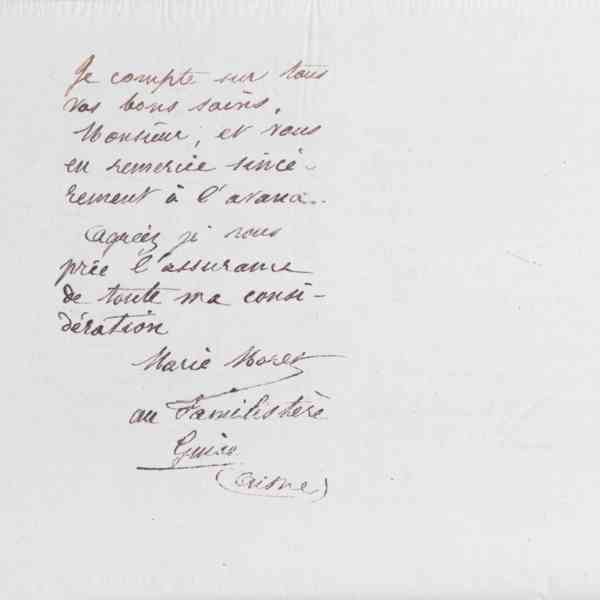 Je compte sur tous
vos bons soins,
Monsieur, et vous
en remercie sincè-
rement à l'avance.
Agréez je vous
prie l'assurance
de toute ma consi-
dération
Marie Moret
au Familistère
Guise
(Aisne)